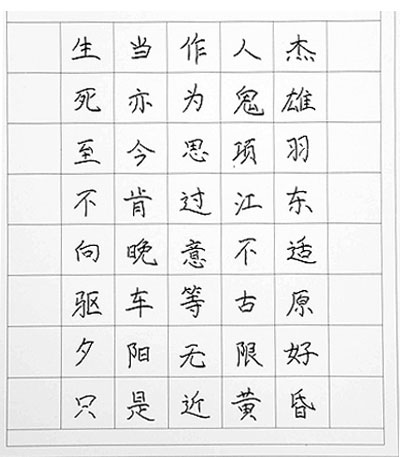 生当作人杰
死亦为鬼雄
至今思项羽
不肯过江东
向晚意不适
驱车等古原
夕阳无限好
只是近黄昏